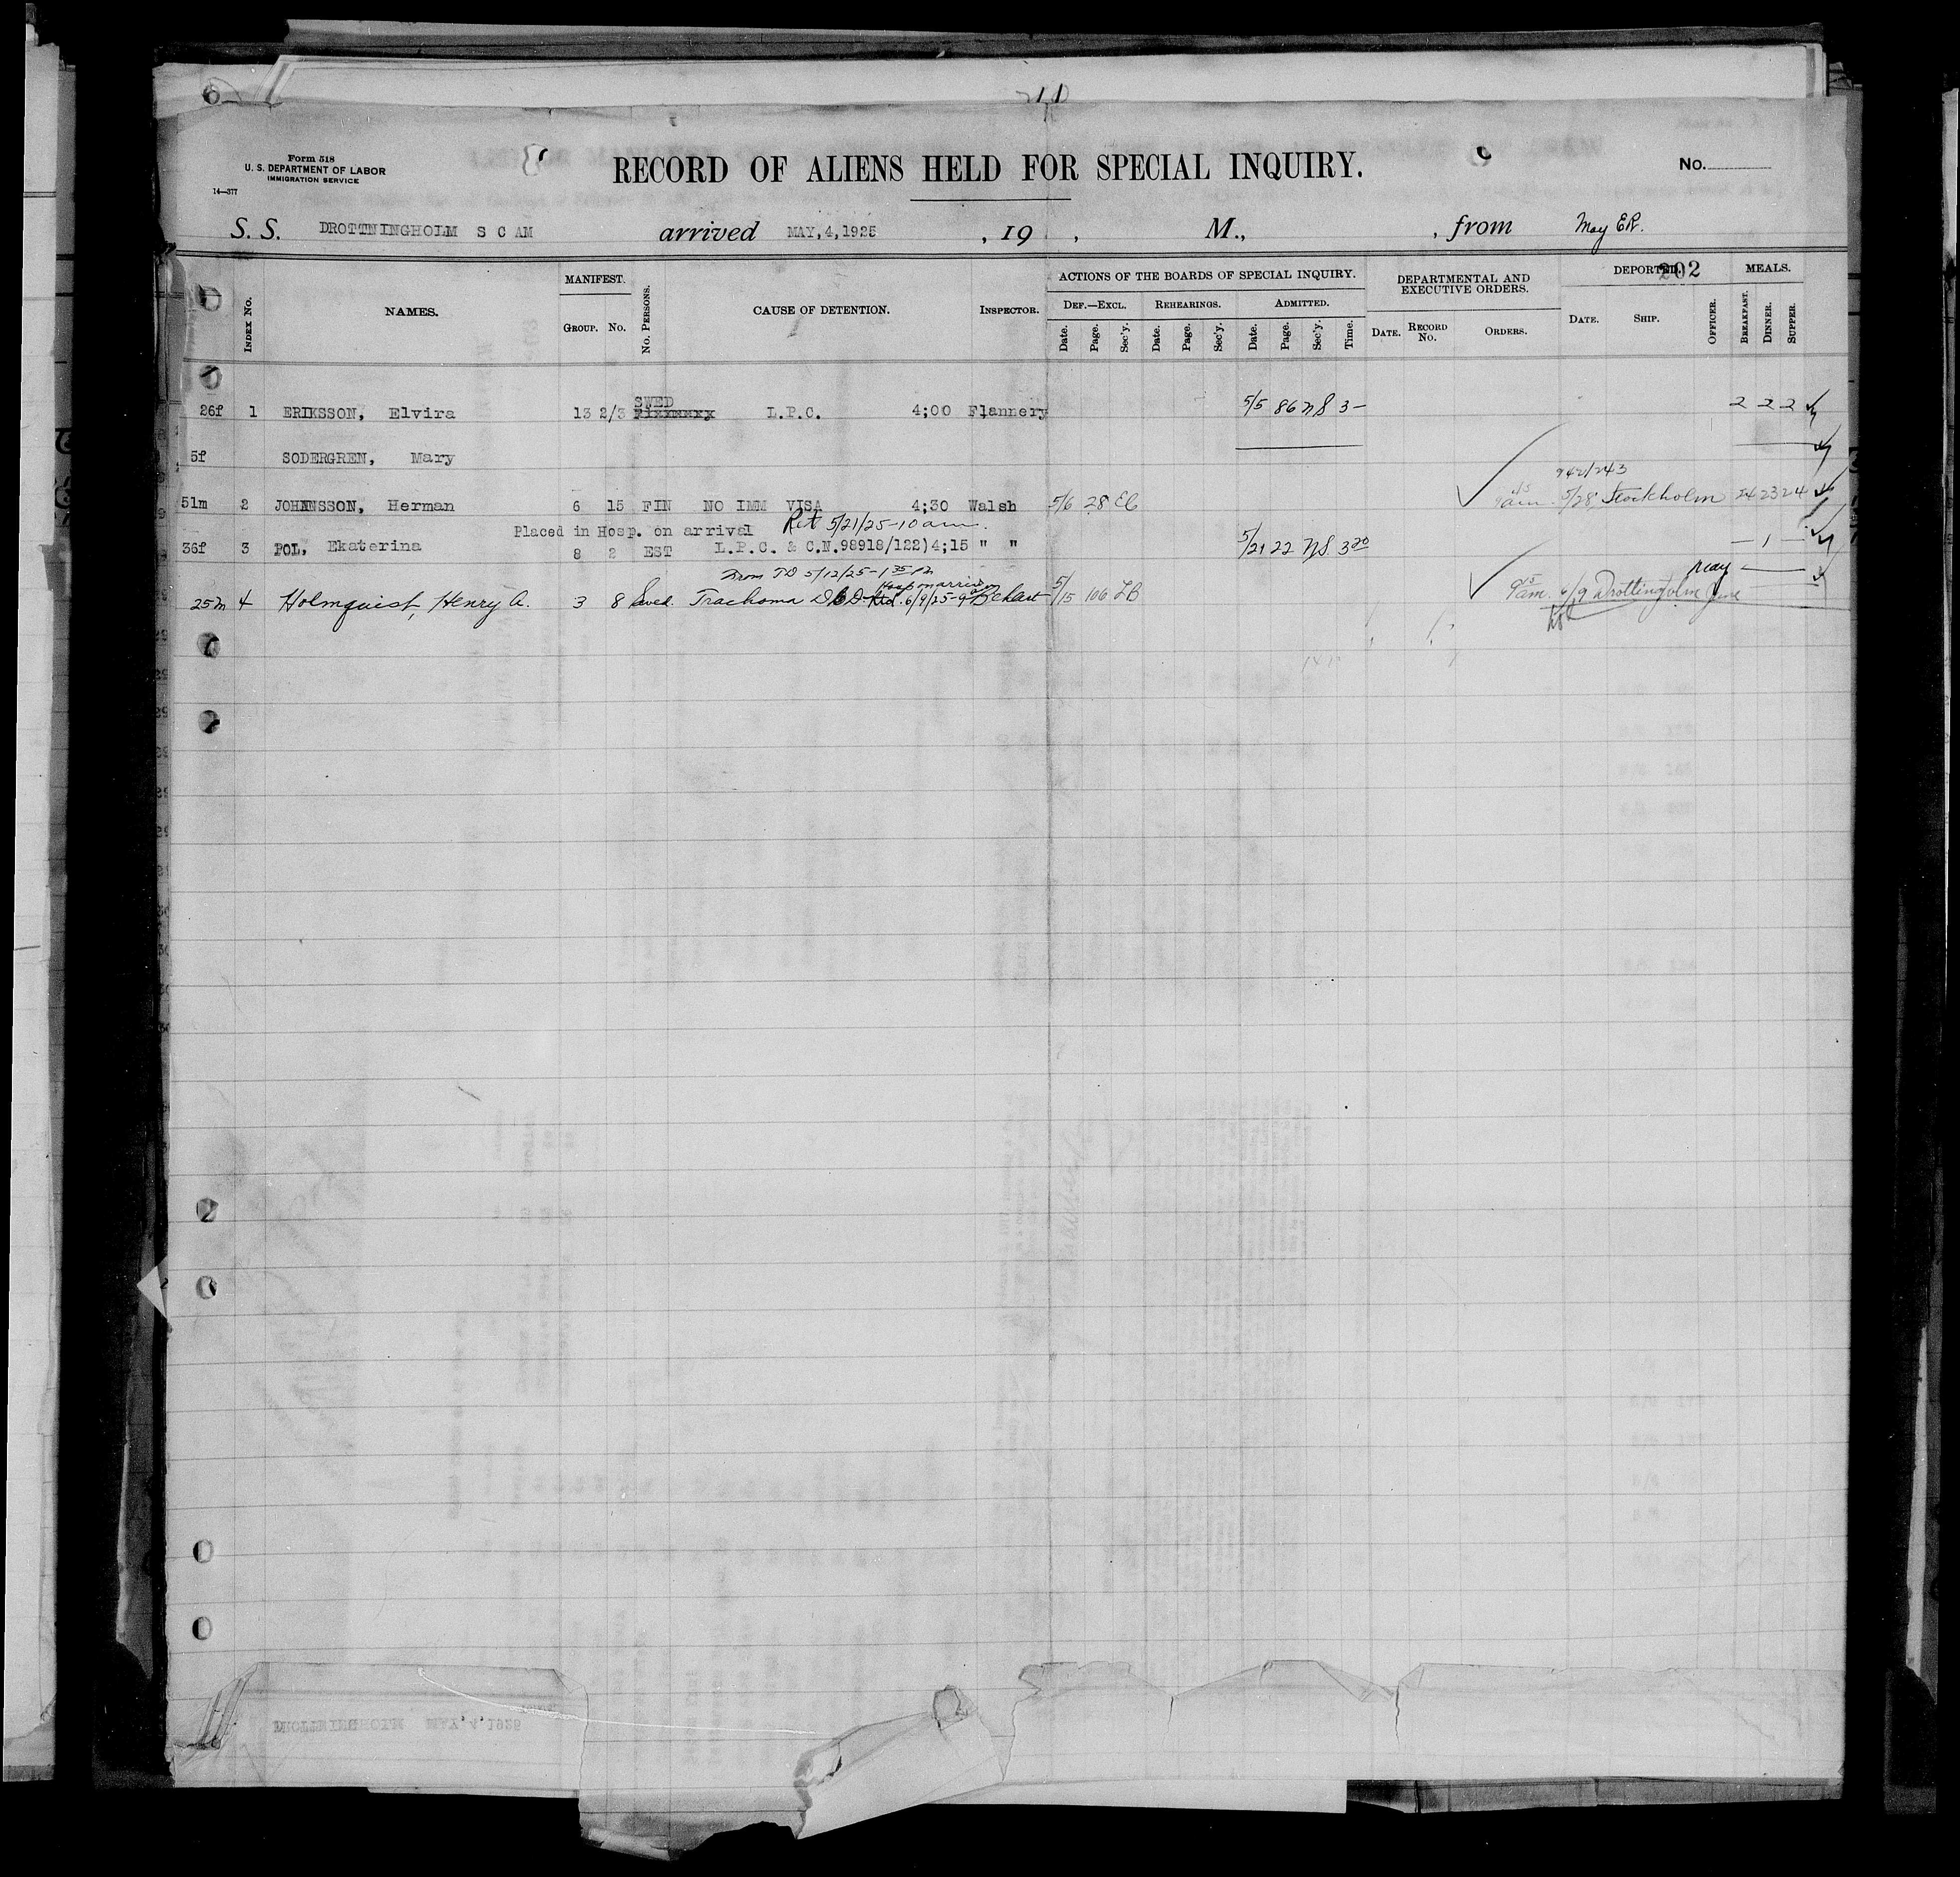 Form 518
U. S. DEPARTMENT OF LABOR
IMMIGRATION SERVICE
14—377
RECORD OF ALIENS HELD FOR SPECIAL INQUIRY.
No.
S. S. DROTTNINGHOLM S C AM arrived MAY,4,1925 , 19 , M., , from May ER.
202
INDEX No. NAMES. MANIFEST. GROUP. No. No. PERSONS. CAUSE OF DETENTION. INSPECTOR. ACTIONS OF THE BOARDS OF SPECIAL INQUIRY. DEPARTMENTAL AND EXECUTIVE ORDERS. DEPORTED. MEALS.
DEF.—EXCL. REHEARINGS. ADMITTED.
Date. Page. Sec'y. Date. Page. Sec'y. Date. Page. Sec'y. Time. DATE. RECORD No. ORDERS. DATE. SHIP. OFFICER. BREAKFAST. DINNER. SUPPER.
SWED
26f 1 ERIKSSON, Elvira 13 2/3 L.P.C. 4;00 Flannery 5/5 86 NS 3- 2 2 2
5f SODERGREN, Mary
942/243
51m 2 JOHANSSON, Herman 6 15 FIN NO IMM VISA 4;30 Walsh 5/6 28 EC 9am 5/28 Stockholm 24 23 24
Placed in Hosp. on arrival Ret 5/21/25-10am.
36f 3 POL, Ekaterina 8 2 EST L.P.C. & C.N.98918/122)4;15 " " 5/21 22 NS 3 20 — 1 —
From TD 5/12/25-1 35 PM
Hosp on arrival
May
25m 4 Holmquist, Henry A. 3 8 Swed. Trachoma 6/9/25-9 5/15 106 LB 9 15 am. 6/9 Drottingholm June
DROTTNINGHOLM MAY,4,1925